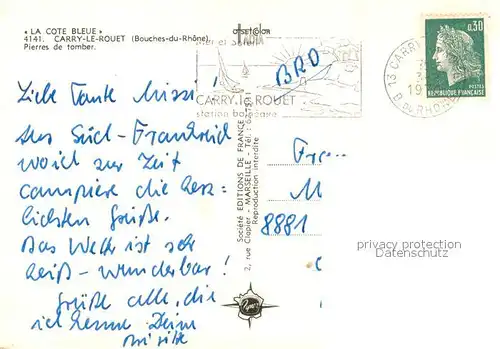 « LA COTE BLEUE »
4141. CARRY-LE-ROUET (Bouches-du-Rhône)
Pierres de tomber.
Mer et Soleil
CARRY.le.ROUET
station balnéaire
13 CARRY
19
B. DU RHONE
0,30
POSTES
REPUBLIQUE FRANÇAISE
BRD
Liebe Tante Missi!
Aus Süd-Frankreich
wo ich zur Zeit
campiere die herz-
lichsten Grüße.
Das Wetter ist sehr
heiß - wunderbar!
Grüße alle, die
ich kenne Deine
Société EDITIONS DE FRANCE
2, rue Clapier - MARSEILLE - Tél :
Reproduction interdite
M
8881
privacy protection
Datenschutz